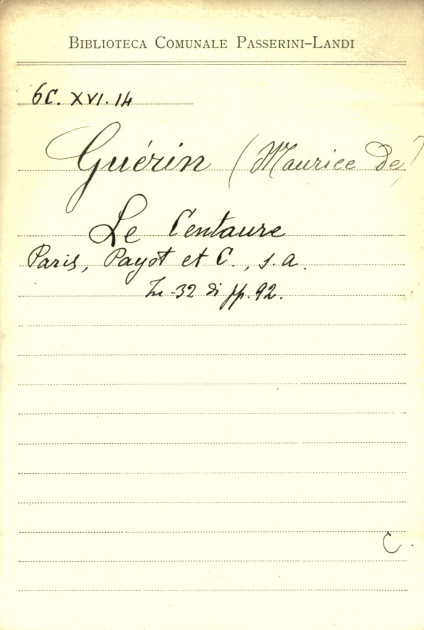 BIBLIOTECA COMUNALE PASSERINI-LANDI
6C. XVI. 14
Guérin (Maurice de)
Le Centaure
Paris, Payot et C., s. a.
In-32 di pp. 92.
C.